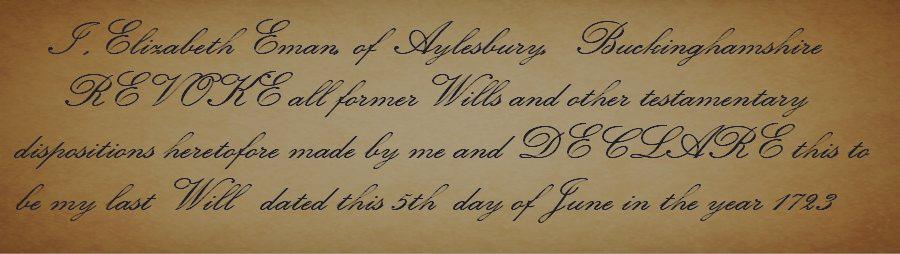 I, Elizabeth Eman, of Aylesbury, Buckinghamshire
REVOKE all former Wills and other testamentary
dispositions heretofore made by me and DECLARE this to
be my last Will dated this 5th day of June in the year 1723